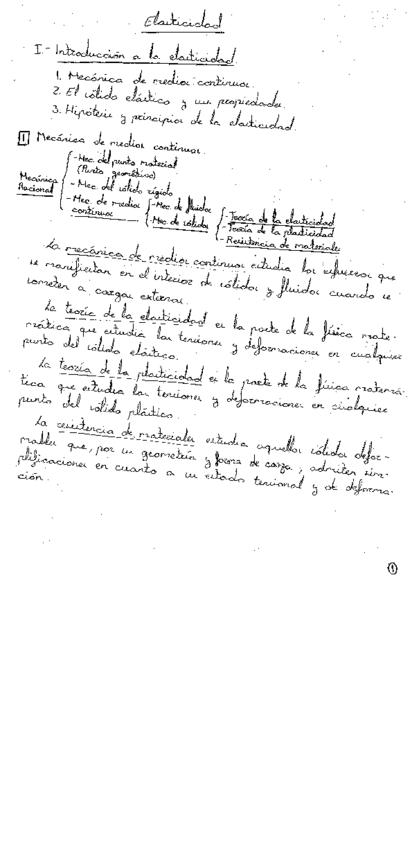 Elasticidad
I.- Introducción a la elasticidad.
1. Mecánica de medios continuos.
2. El sólido elástico y sus propiedades.
3. Hipótesis y principios de la elasticidad.
1 Mecánica de medios continuos.
Mecánica Racional
- Mec. del punto material
(Punto geométrico)
- Mec. del sólido rígido
- Mec. de medios continuos
- Mec. de fluidos
- Mec. de sólidos
- Teoría de la elasticidad
- Teoría de la plasticidad
- Resistencia de materiales
La mecánica de medios continuos estudia los esfuerzos que
se manifiestan en el interior de sólidos y fluidos cuando se
someten a cargas externas.
La teoría de la elasticidad es la parte de la física mate-
mática que estudia las tensiones y deformaciones en cualquier
punto del sólido elástico.
La teoría de la plasticidad es la parte de la física matemá-
tica que estudia las tensiones y deformaciones en cualquier
punto del sólido plástico.
La resistencia de materiales estudia aquellos sólidos defor-
mables que, por su geometría y forma de carga, admiten sim-
plificaciones en cuanto a su estado tensional y de deforma-
ción.
1